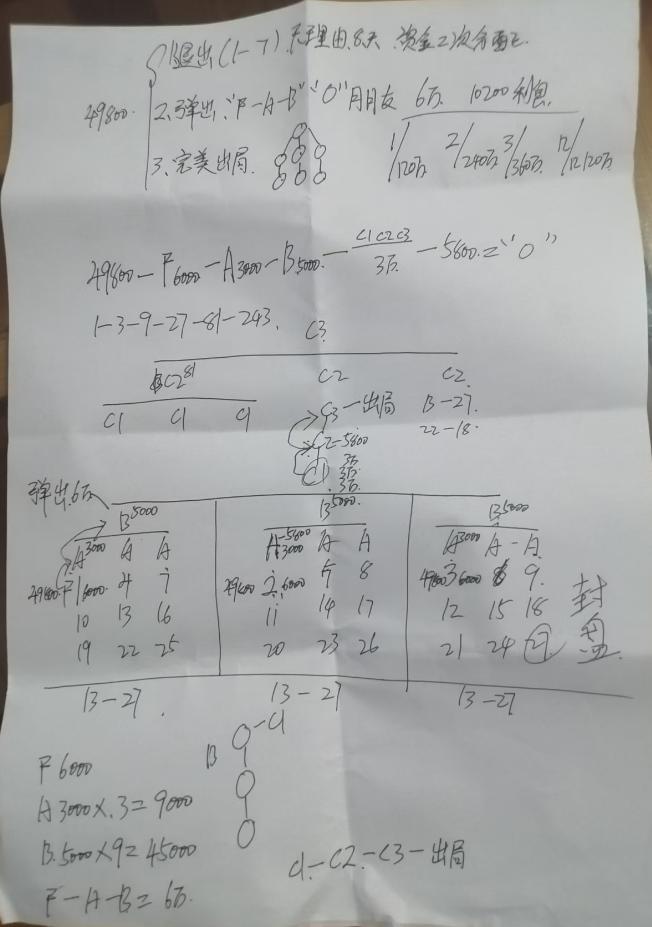 1退出(1-7)无理由.8天 资金2次分配.
49800.
2、弹出."F-A-B" "0"月月友 6万 10200利息
3、完美出局.
1/120万 2/240万 3/360万 12/120万
49800-F6000-A3000-B5000-C1C2C3/3万-5800="0"
1-3-9-27-81-243.
C3
C2 81 C2 C2
C1 C1 C1
C3-出局 B-27.
C2-5800 22-18.
C1 3万
3万
3万
弹出6万
B5000 B5000 B5000
A3000 A A A-5800 3000 A A A3000 A-A
49800-F1 6000 4 7 49800 2.6000 5 8 49800 3 6000 6 9.
10 13 16 11 14 17 12 15 18 封
19 22 25 20 23 26 21 24 27 盘
13-27. 13-27 13-27
B C1
F6000
A3000×.3=9000
B.5000×9=45000
F-A-B=6万.
C1-C2-C3-出局